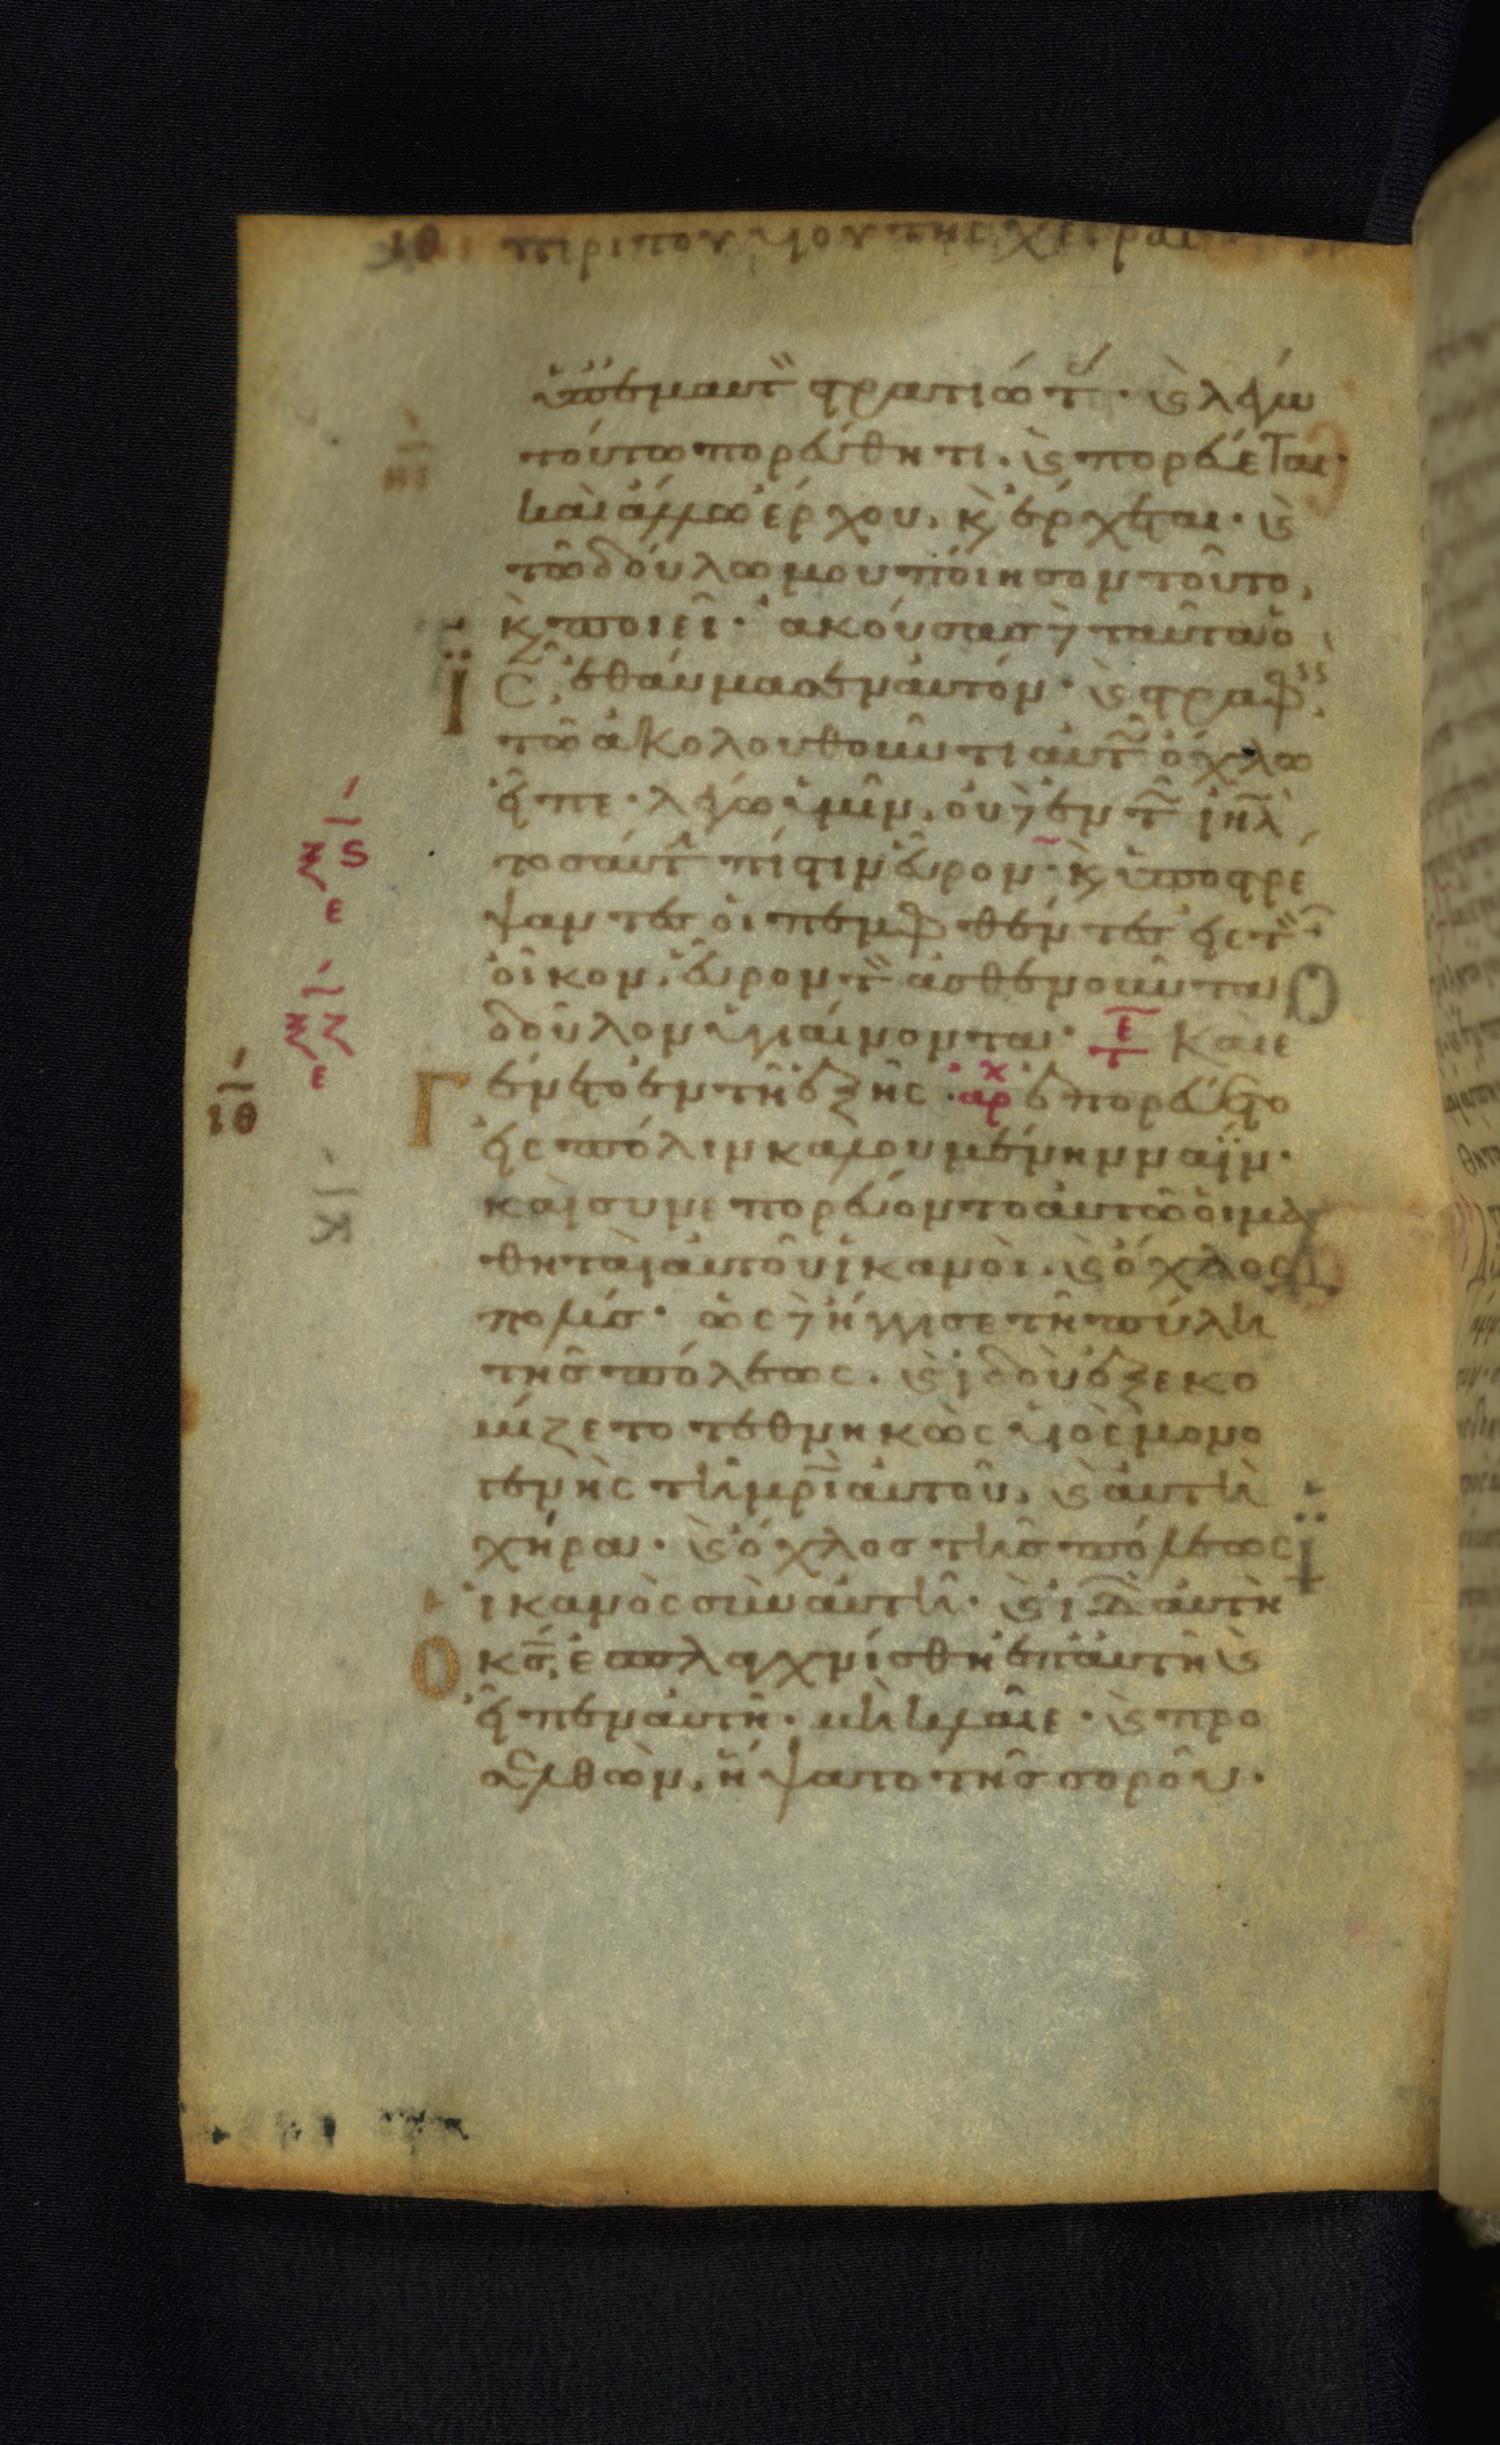 ιθ περὶ τοῦ υἱοῦ τῆς χήρας
ὑπ' ἐμαυτ(ὸν) στρατιώτ(ας)· (καὶ) λέγω
τούτω πορεύθητι· (καὶ) πορεύεται·
καὶ ἄλλω ἔρχου, κ(αὶ) ἔρχεται· (καὶ)
τῶ δούλω μου ποίησον τοῦτο,
κ(αὶ) ποιεῖ· ἀκούσας δὲ ταῦτα ὁ
ις, ἐθαύμασεν αὐτόν· (καὶ) στραφεὶς,
τῶ ἀκολουθοῦντι αὐτῶ ὄχλω
εἶπε· λέγω ὑμῖν, οὐδὲ ἐν τῶ ιηλ
τοσαύτ(ην) πίστιν εὗρον· κ(αὶ) ὑποστρέ
ψαντες οἱ πεμφθέντες εἰς τ(ὸν)
οἶκον, εὗρον τ(ὸν) ἀσθενοῦντα
δοῦλον ὑγιαίνοντα· τε Καὶ ἐ
γένετο ἐν τῆ ἑξῆς· αρχ ἐπορεύετο
εἰς πόλιν καλουμένην ναΐν·
καὶ συνεπορεύοντο αὐτῶ οἱ μα
θηταὶ αὐτοῦ ἱκανοὶ, (καὶ) ὄχλος
πολύς· ὡς δὲ ἤγγισε τῆ πύλη
τῆς πόλεως, (καὶ) ἰδοὺ ἐξεκο
μίζετο τεθνηκὼς υἱὸς μονο
γενὴς τῆ μρι αὐτοῦ, (καὶ) αὐτὴ
χήρα· (καὶ) ὄχλος τῆς πόλεως
ἱκανὸς σὺν αὐτῆ· (καὶ) ἰδὼν αὐτὴν
Ὁ κς, ἐσπλαγχνίσθη ἐπ' αὐτῆ (καὶ)
εἶπεν αὐτῆ· μὴ κλαῖε· (καὶ) προ
σελθὼν, ἥψατο τῆς σοροῦ·
ξς
ε
ξζ
ε
ιθ